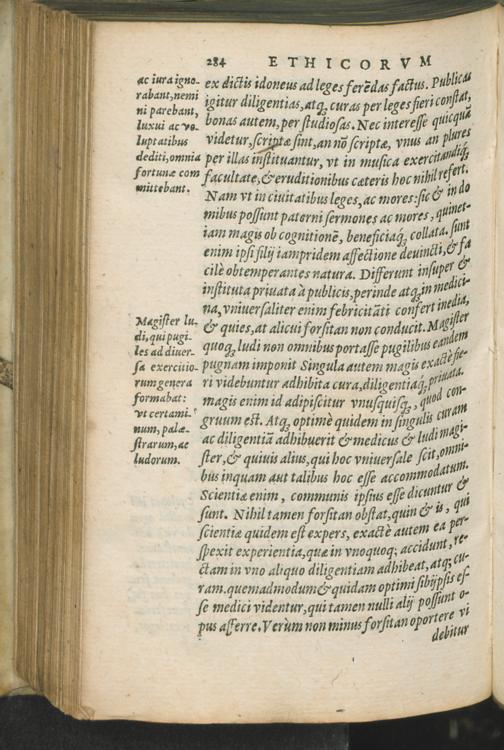 284 ETHICORVM
ac iura igno-
rabant, nemi
ni parebant,
luxui ac vo-
luptatibus
dediti, omnia
fortunæ com
mittebant.
Magister lu-
di, qui pugi-
les ad diuer-
sa exercitio-
rum genera
formabat:
vt certami-
num, palæ-
strarum, ac
ludorum.
ex dictis idoneus ad leges ferēdas factus. Publicas
igitur diligentias, atq; curas per leges fieri constat,
bonas autem, per studiosas. Nec interesse quicquā
videtur, scriptæ sint, an nō scriptæ, vnus an plures
per illas instituantur, vt in musica exercitandiq́;
facultate, & eruditionibus cæteris hoc nihil refert.
Nam vt in ciuitatibus leges, ac mores: sic & in do
mibus possunt paterni sermones ac mores, quinet-
iam magis ob cognitionē, beneficiaq́; collata. sunt
enim ipsi filij iampridem affectione deuincti, & fa
cilè obtemperantes natura. Differunt insuper &
instituta priuata à publicis, perinde atq; in medici-
na, vniuersaliter enim febricitāti confert inedia,
& quies, at alicui forsitan non conducit. Magister
quoq; ludi non omnibus portasse pugilibus eandem
pugnam imponit Singula autem magis exactè fie-
ri videbuntur adhibita cura, diligentiaq; priuata.
magis enim id adipiscitur vnusquisq;, quod con-
gruum est. Atq; optimè quidem in singulis curam
ac diligentiā adhibuerit & medicus & ludi magi-
ster, & quiuis alius, qui hoc vniuersale scit, omni-
bus inquam aut talibus hoc esse accommodatum.
Scientiæ enim, communis ipsius esse dicuntur &
sunt. Nihil tamen forsitan obstat, quin & is, qui
scientiæ quidem est expers, exactè autem ea per-
spexit experientia, quæ in vnoquoq; accidunt, re-
ctam in vno aliquo diligentiam adhibeat, atq; cu-
ram. quemadmodum & quidam optimi sibijpsis es-
se medici videntur, qui tamen nulli alij possunt o-
pus afferre. Verùm non minus forsitan oportere vi
debitur